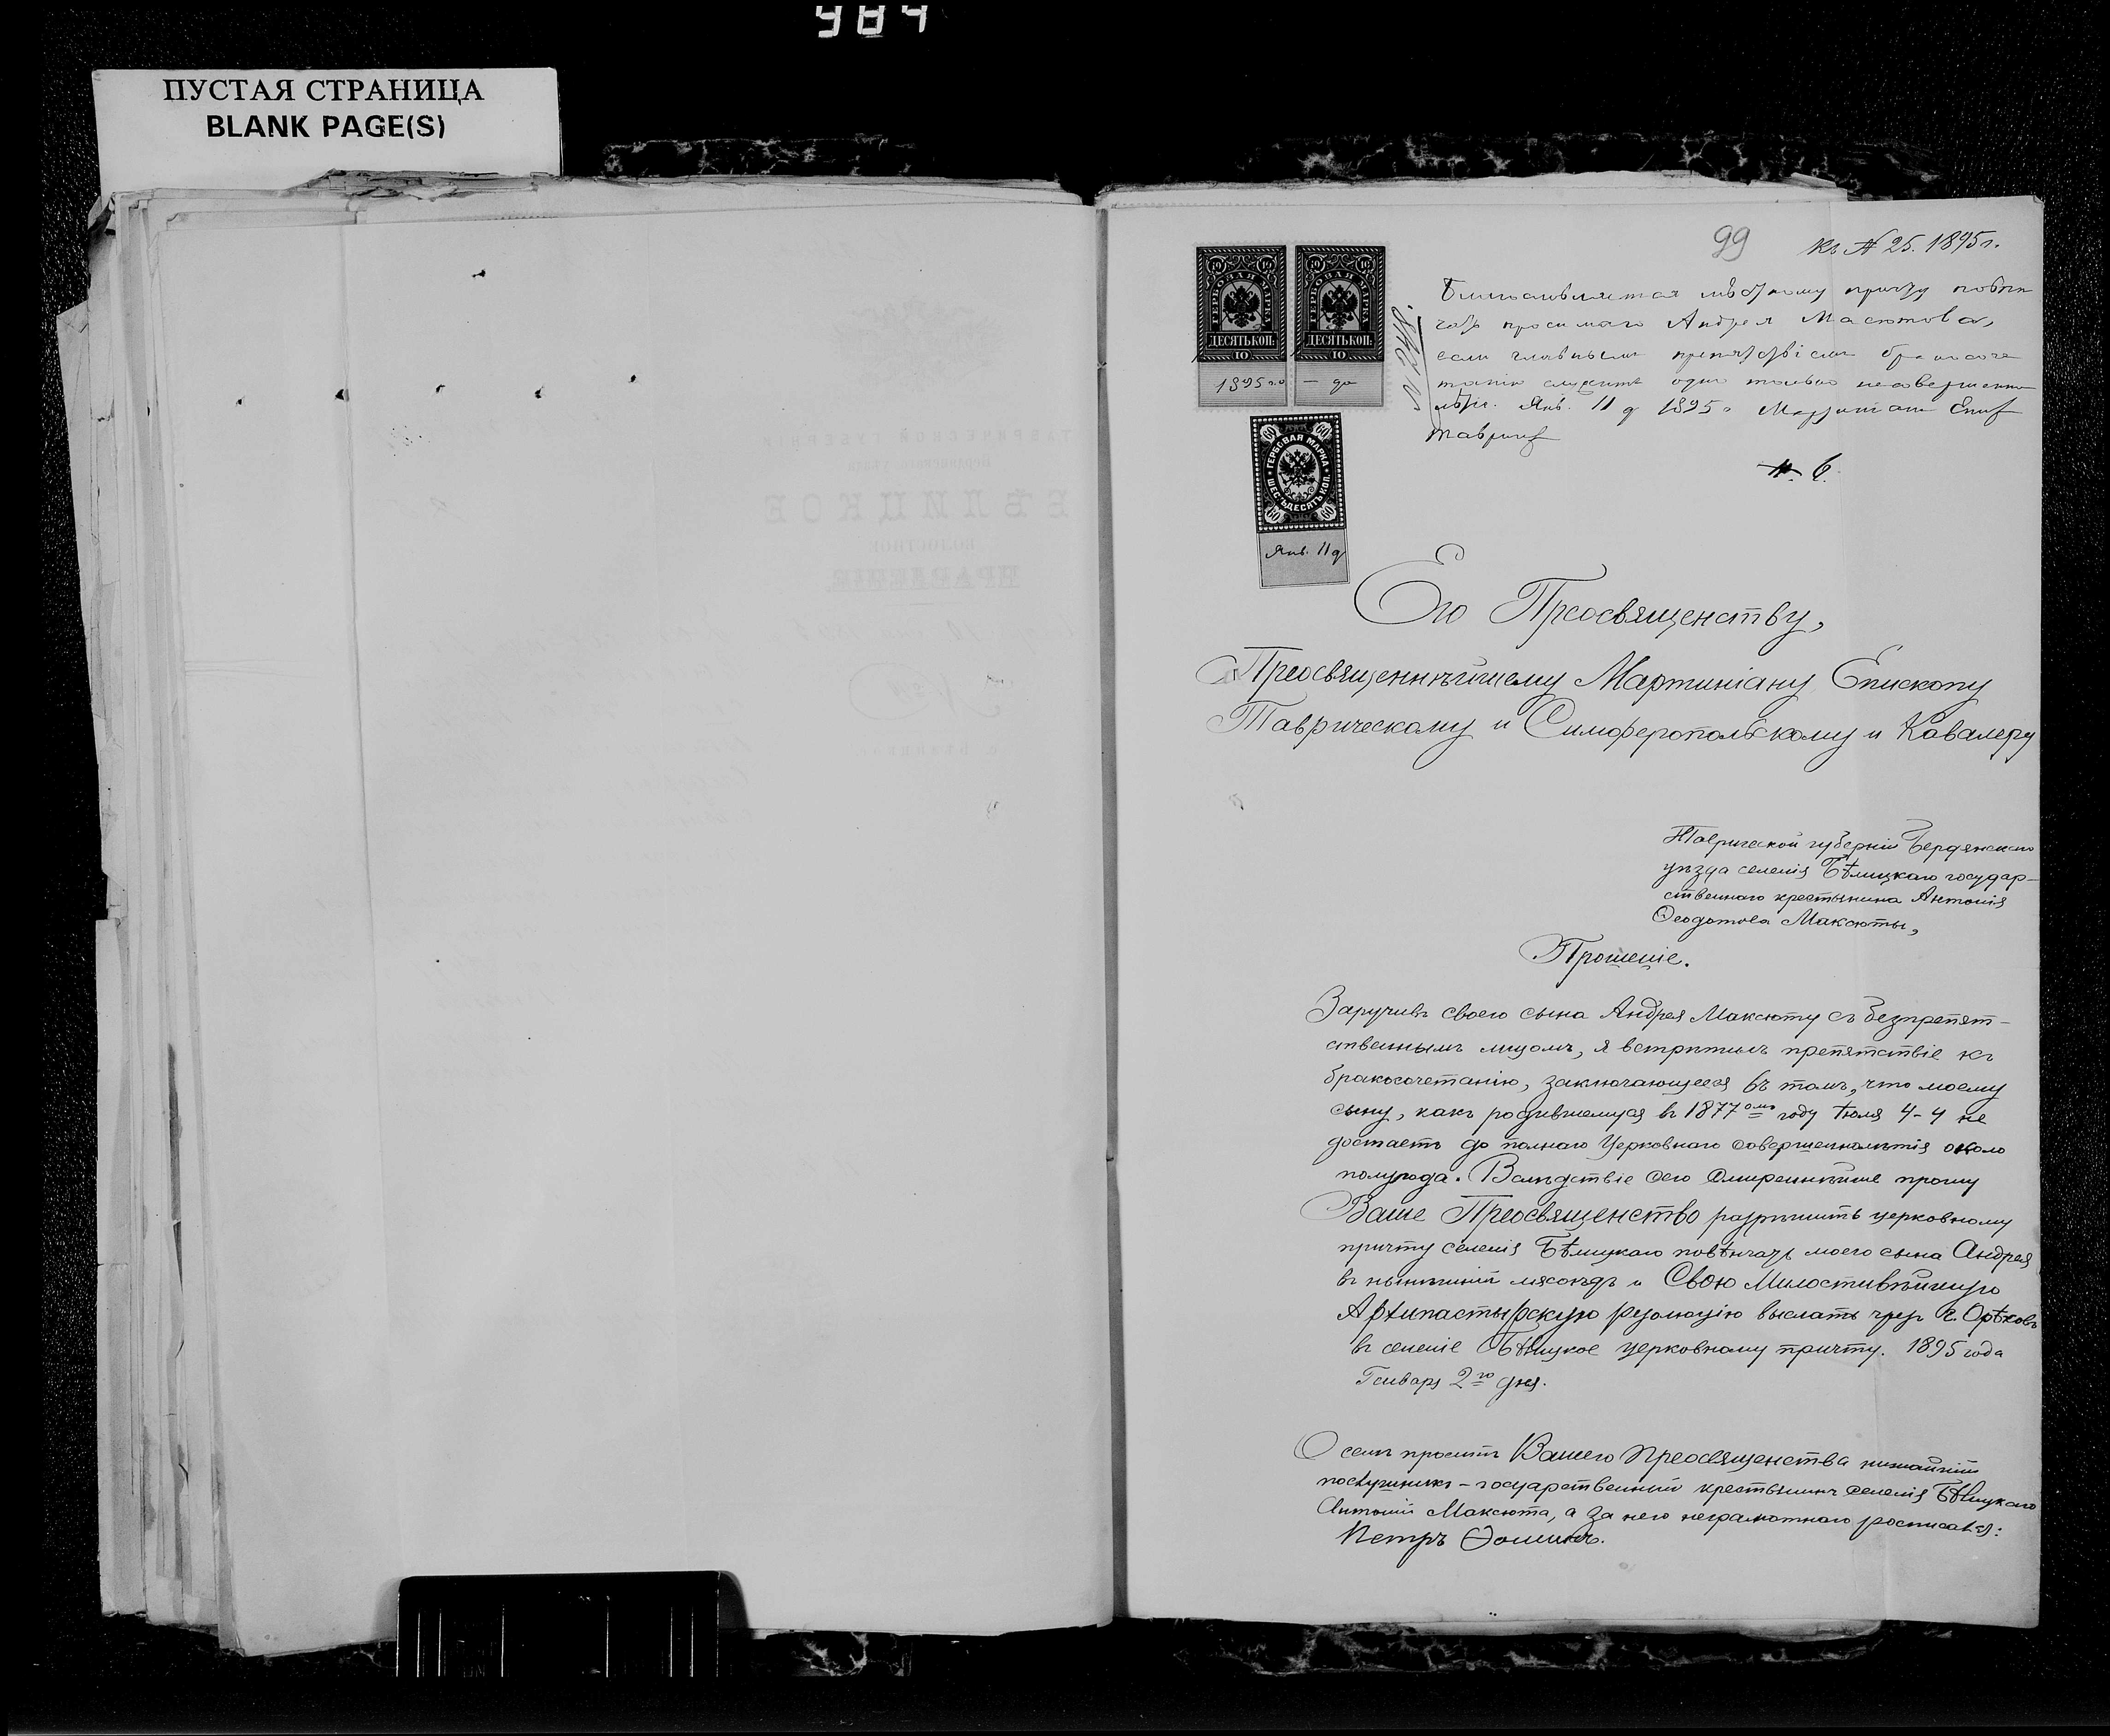 984
ПУСТАЯ СТРАНИЦА
BLANK PAGE(S)
99
Къ № 25. 1895 г.
ГЕРБОВАЯ МАРКА
ДЕСЯТЬ КОП:
10
1895 г.
ГЕРБОВАЯ МАРКА
ДЕСЯТЬ КОП:
10
ГЕРБОВАЯ МАРКА
ШЕСТЬДЕСЯТЪ КОП.
60
Янв. 11 д
Благословляется мѣстному причту повѣн
чать просимаго Андрея Масютова,
если главнымъ препятствіемъ бракосоче
танію служитъ одно только несовершенно
лѣтіе. Янв. 11 д 1895 г. Мартиніанъ Еписк
Таврич
№ 6.
Его Преосвященству,
Преосвященнѣйшему Мартиніану Епископу
Таврическому и Симферопольскому и Кавалеру
Таврической губерніи Бердянскаго
уѣзда селенія Бѣлицкаго государ-
ственнаго крестьянина Антонія
Ѳеодотова Максюты,
Прошеніе.
Заручивъ своего сына Андрея Максюту съ безпрепят-
ственнымъ лицомъ, я встрѣтилъ препятствіе къ
бракосочетанію, заключающееся въ томъ, что моему
сыну, какъ родившемуся въ 1877омъ году Іюля 4-4 не
достаетъ до полнаго Церковнаго совершеннолѣтія около
полугода. Вслѣдствіе сего Смиреннѣйше прошу
Ваше Преосвященство разрѣшить церковному
причту селенія Бѣлицкаго повѣнчать моего сына Андрея
въ нынѣшній мясоѣдъ и Свою Милостивѣйшую
Архипастырскую резолюцію выслать чрезъ г. Орѣховъ
въ селеніе Бѣлицкое церковному причту. 1895 года
Генваря 2го дня.
О семъ проситъ Вашего Преосвященства нижайшій
послушникъ - государственный крестьянинъ селенія Бѣлицкаго
Антоній Максюта, а за него неграмотнаго росписался:
Петръ Ѳоминъ.